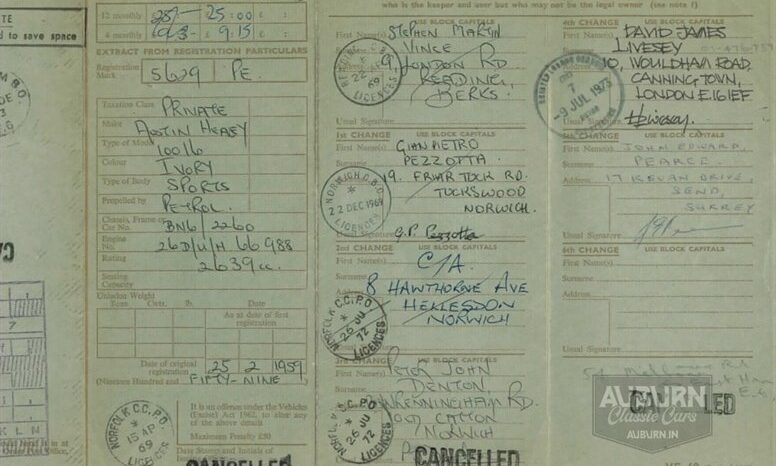 who is the keeper and user but who may not be the legal owner (see note f)
to save space
12 monthly £ 25:00 :
4 monthly £ 9:15 :
EXTRACT FROM REGISTRATION PARTICULARS
Registration Mark 5629 PE.
Taxation Class PRIVATE
Make AUSTIN HEALY
Type of Model 100/6
Colour IVORY
Type of Body SPORTS
Propelled by PETROL
Chassis, Frame or Car No. BN6/2260
Engine No. 26D/U/H 66988
Rating 2639cc.
Seating Capacity
Unladen Weight
Tons Cwts. lb. Date
As at date of first registration
Date of original registration 25 2 1959
(Nineteen Hundred and FIFTY-NINE
NORFOLK C.C. P.O. 15 AP 69 LICENCES
It is an offence under the Vehicles
(Excise) Act 1962, to alter any
of the above details
Maximum Penalty £50
Date Stamp and Initials of
CANCELLED
USE BLOCK CAPITALS
First Name(s) STEPHEN MARTIN
VINCE
9, LONDON RD
READING,
BERKS.
LICENCES
Usual Signature
1st CHANGE USE BLOCK CAPITALS
First Name(s) GIANPIETRO
Surname PEZZOTTA.
19. FRIAR TUCK RD.
TUCKSWOOD
NORWICH.
NORWICH D.B.O. 22 DEC 1969 LICENCES
G.P. Pezzotta
2nd CHANGE USE BLOCK CAPITALS
First Name(s) C/A.
Surname
8 HAWTHORNE AVE
HELLESDON
NORWICH
NORFOLK C.C. P.O. 26 JU 72 LICENCES
3rd CHANGE USE BLOCK CAPITALS
First Name(s) PETER JOHN
DENTON,
RD.
OLD CATTON
NORWICH
NORFOLK C.C. P.O. 26 JU 72 LICENCES
CANCELLED
4th CHANGE USE BLOCK CAPITALS
First Name(s) DAVID JAMES
LIVESEY
10, WOULDHAM ROAD,
CANNING TOWN,
LONDON E.16 1EF
7 -9 JUL 1973
Usual Signature
5th CHANGE USE BLOCK CAPITALS
First Name(s) JOHN EDWARD,
Surname PEARCE.
Address 17 KEVAN DRIVE,
SEND,
SURREY
Usual Signature
6th CHANGE USE BLOCK CAPITALS
First Name(s)
Surname
Address
Usual Signature
CANCELLED
AUBURN
Classic Cars
AUBURN.IN